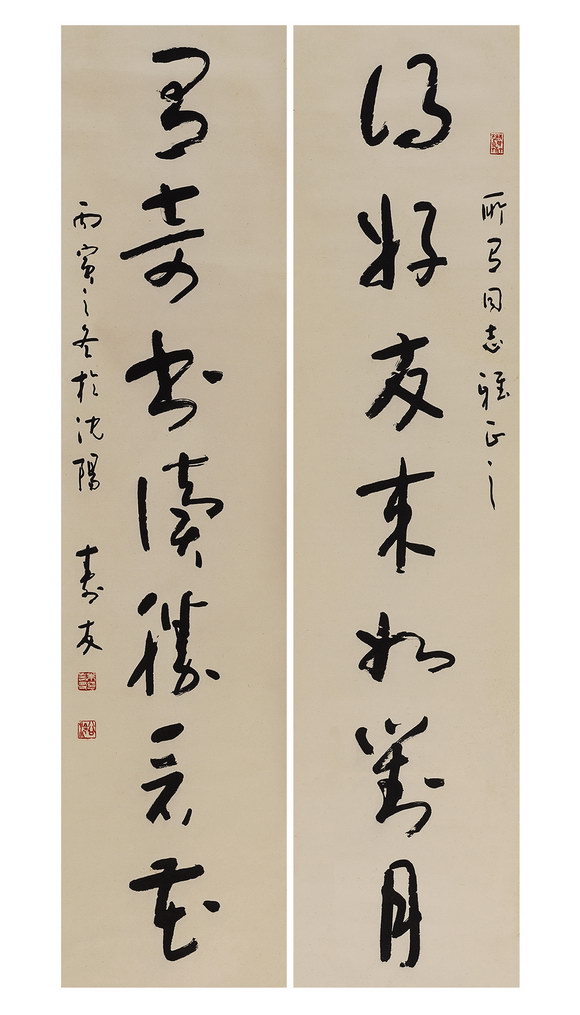 所为同志雅正之
得好友来如对月
有奇书读胜看花
丙寅之冬於沈陽 壽友